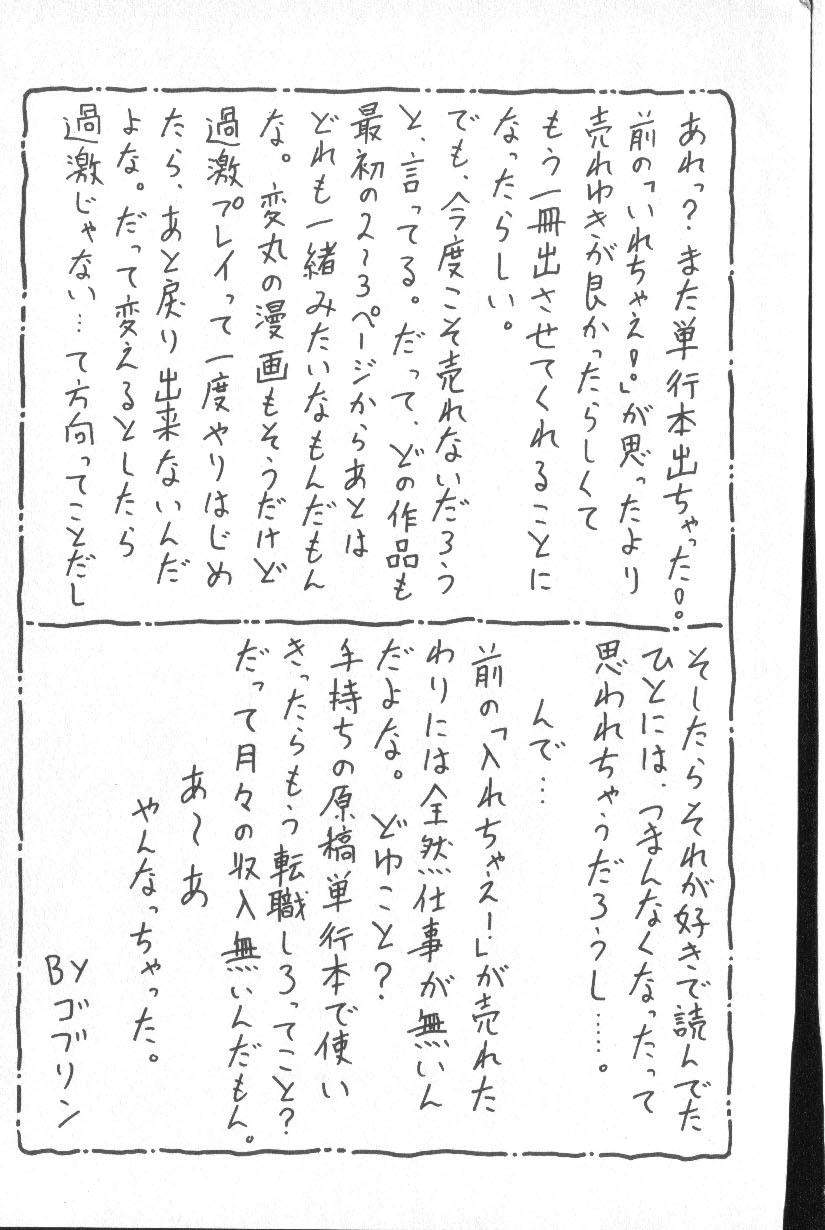 あれっ?また単行本出ちゃった!。
前の「いれちゃえ!。」が思ったより
売れゆきが良かったらしくて
もう一冊出させてくれることに
なったらしい。
でも、今度こそ売れないだろう
と、言ってる。だって、どの作品も
最初の2~3ページからあとは
どれも一緒みたいなもんだもん
な。変丸の漫画もそうだけど
過激プレイって一度やりはじめ
たら、あと戻り出来ないんだ
よな。だって変えるとしたら
過激じゃない…て方向ってことだし
そしたらそれが好きで読んでた
ひとには、つまんなくなったって
思われちゃうだろうし……。
んで…
前の「入れちゃえ!」が売れた
わりには全然仕事が無いん
だよな。どゆこと?
手持ちの原稿単行本で使い
きったらもう転職しろってこと?
だって月々の収入無いんだもん。
あ~あ
やんなっちゃった。
BYゴブリン